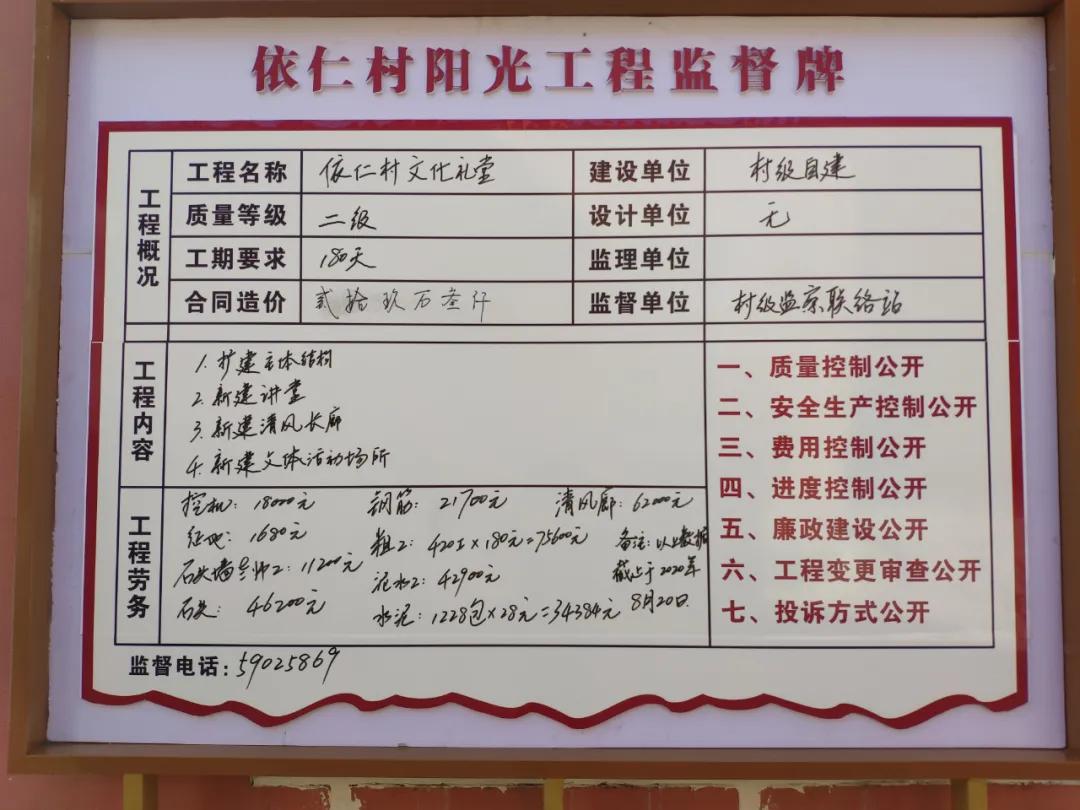 依仁村阳光工程监督牌
工程概况
工程名称 依仁村文化礼堂 建设单位 村级自建
质量等级 二级 设计单位 无
工期要求 180天 监理单位
合同造价 贰拾玖万叁仟 监督单位 村级监察联络站
工程内容
1. 扩建主体结构
2. 新建讲堂
3. 新建清风长廊
4. 新建文体活动场所
一、质量控制公开
二、安全生产控制公开
三、费用控制公开
四、进度控制公开
五、廉政建设公开
六、工程变更审查公开
七、投诉方式公开
工程劳务
挖机: 18000元 钢筋: 21700元 清风廊: 62000元
征地: 1680元 粗工: 420工×180元=75600元 备注: 以上数据
石头墙 师工: 11200元 泥水工: 42900元 截止于2020年
石头: 46200元 水泥: 1228包×28元=34384元 8月20日.
监督电话: 59025869